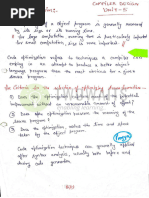 COMPILER DESIGN
UNIT - V
of a object program is generally measured
by its size or its running time
for large computation, running time is particularly important
for small computation, size is more important
Code optimization refers to techniques a compiler can
employ in an attempt to produce a better object
language program than the most obvious for a given
source program.
The Criteria for the selection optimizing transformation
1) Does the optimization capture most of the potential
improvement without
2) Does the optimization preserve the meaning of source
program?
3) Does the optimization, reduce the time or space
taken by the object program?
Code optimization techniques are generally applied
after syntax analysis, usually both before and
during code generation.